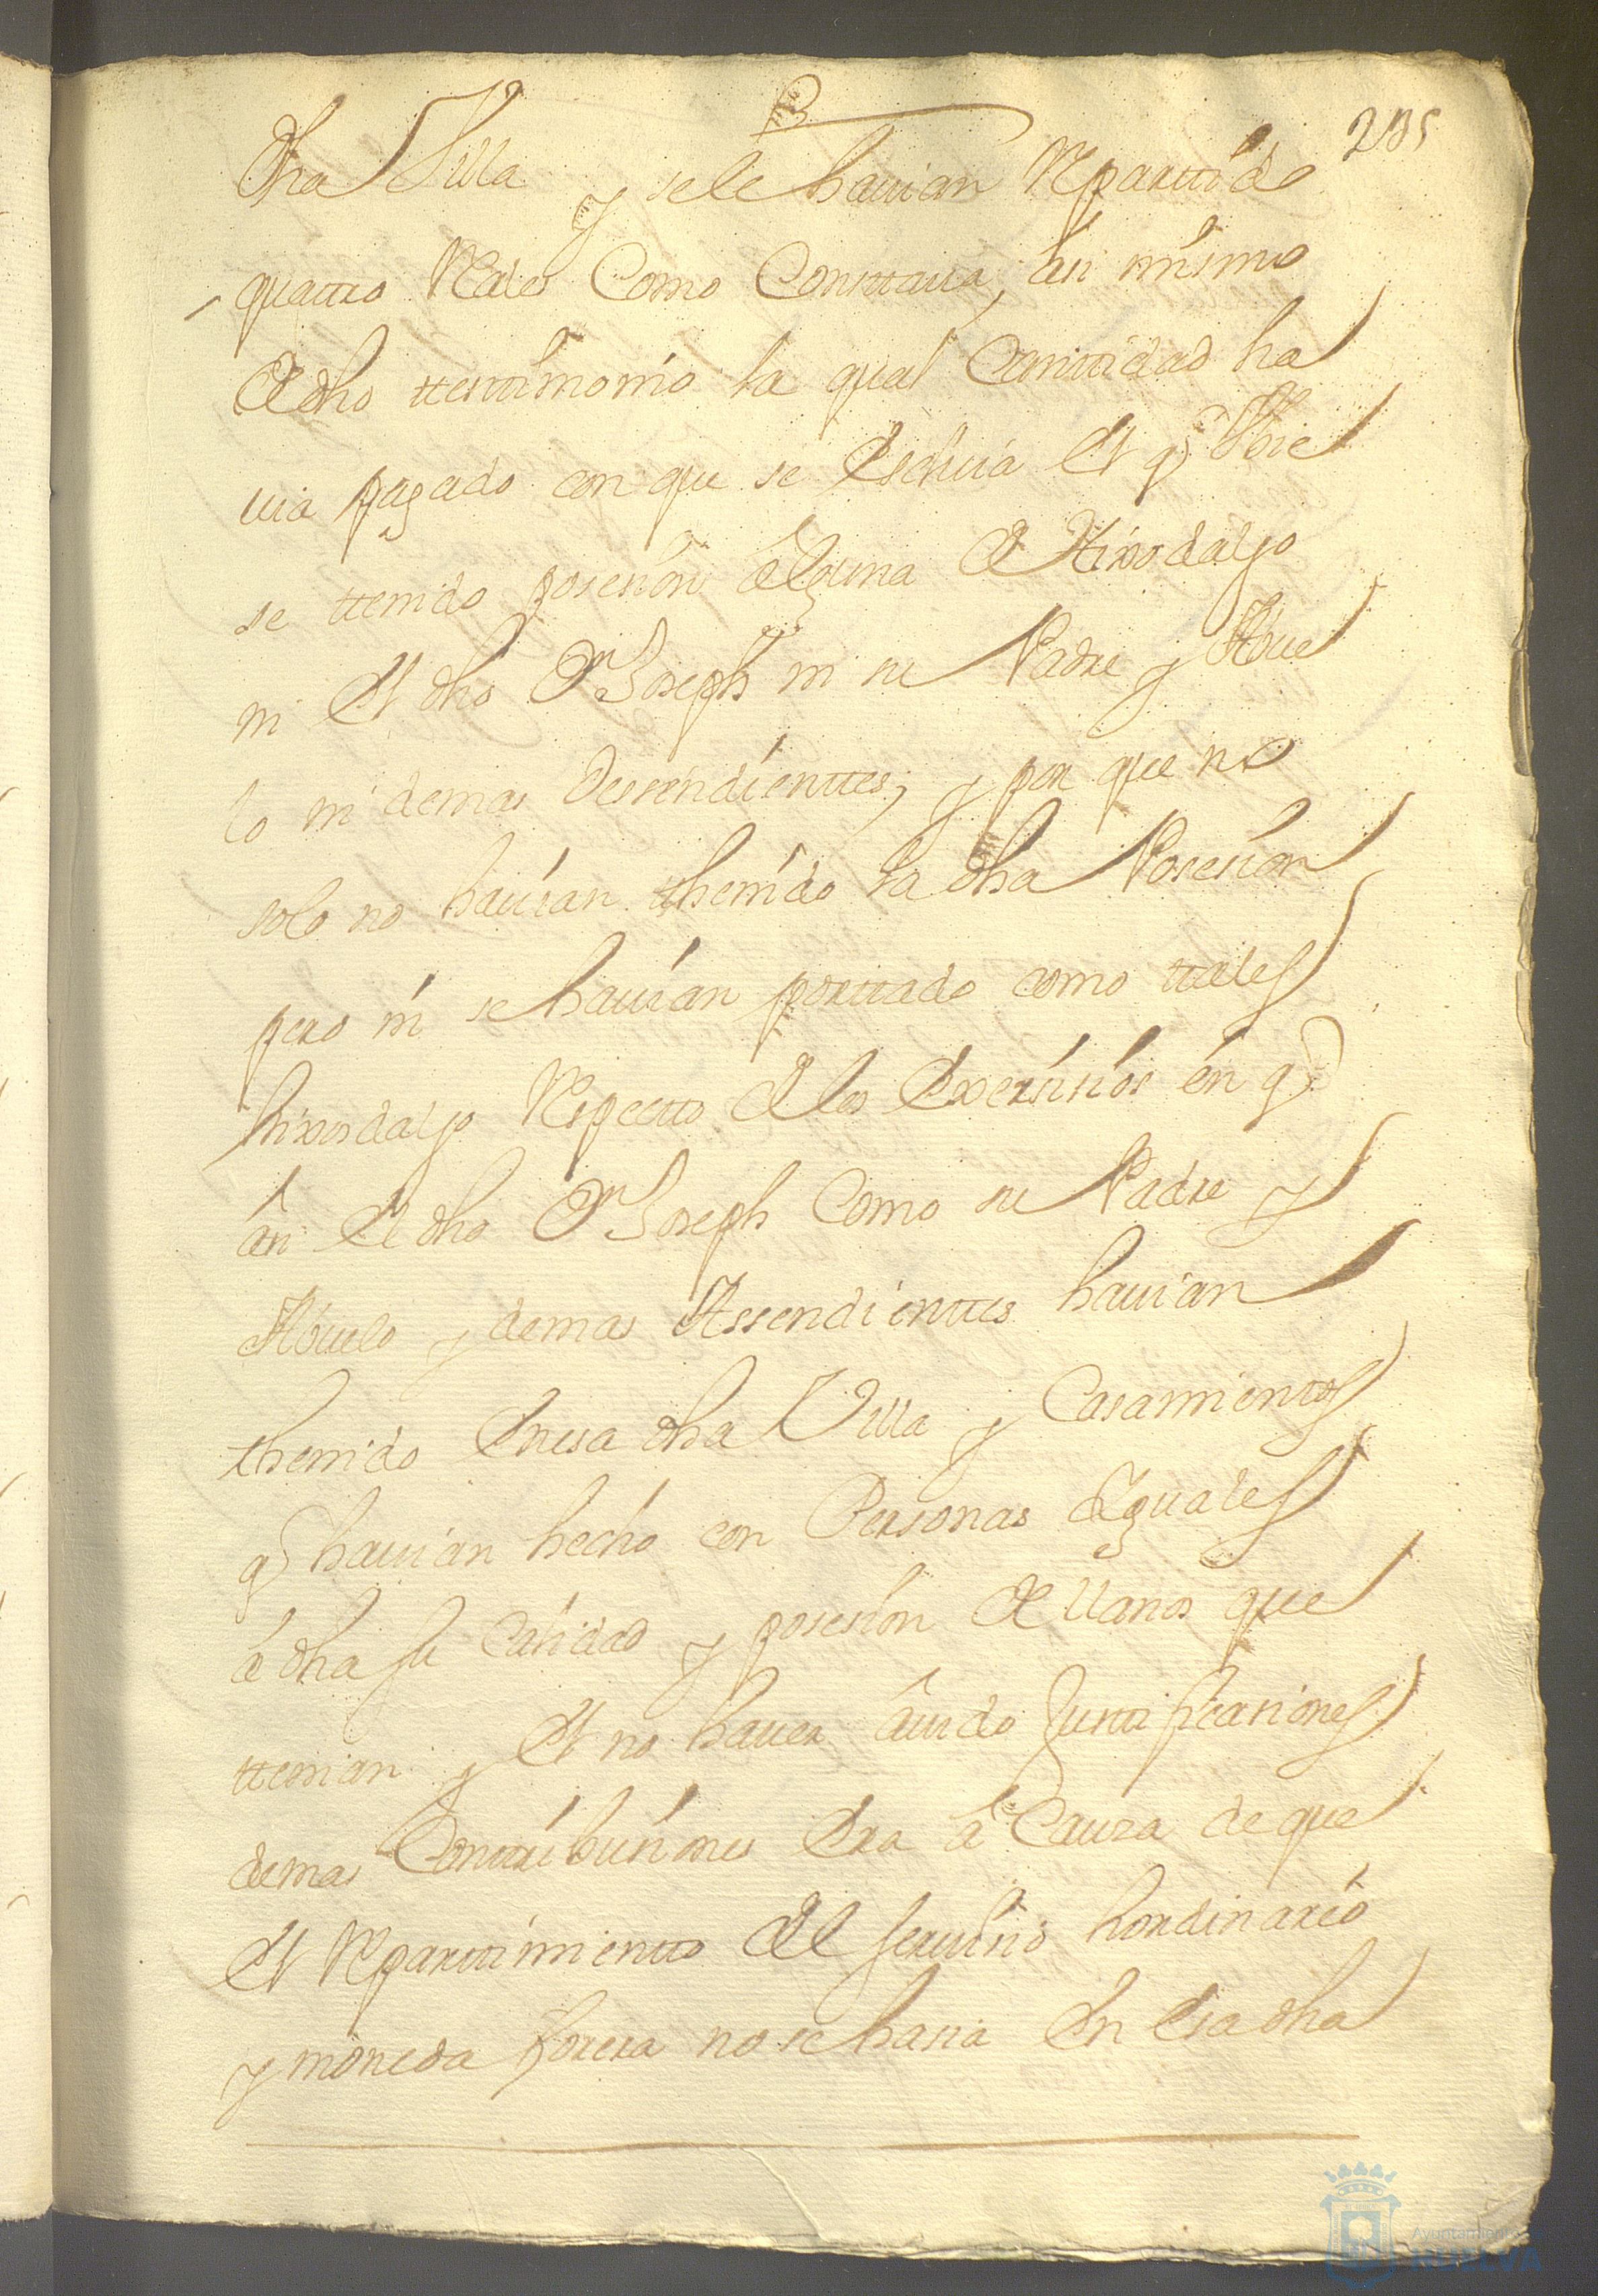 235
dha Villa y se le havian Repartido
quattro Rales Como Consttava, asi mismo
de dho testtimonio la qual Canttidad ha
via pagado con que se escluia el q̃ Vbie
se ttenido posesion alguna de Hixodalgo
ni el dho Dn Joseph ni su Padre y Abue
lo ni demas Dessendienttes, y por que no
solo no havian thenido la dha Posesion
pero ni se havian porttado como ttales
hixosdalgo Respecto de los Exersisios en q̃
an el dho Dn Joseph Como su Padre y
Abuelo y demas Assendienttes havian
thenido en esa dha Villa y Casamientos
q̃ havian hecho con Personas Yguales
a dha su Calidad y posesion de llanos que
ttenian y el no haver avido Justificasiones
demas Conttribusiones Era a Cauza de que
el Reparttimientto del servisio hordinario
y moneda forera no se hasia En esa dha
Ayuntamiento de
HUELVA